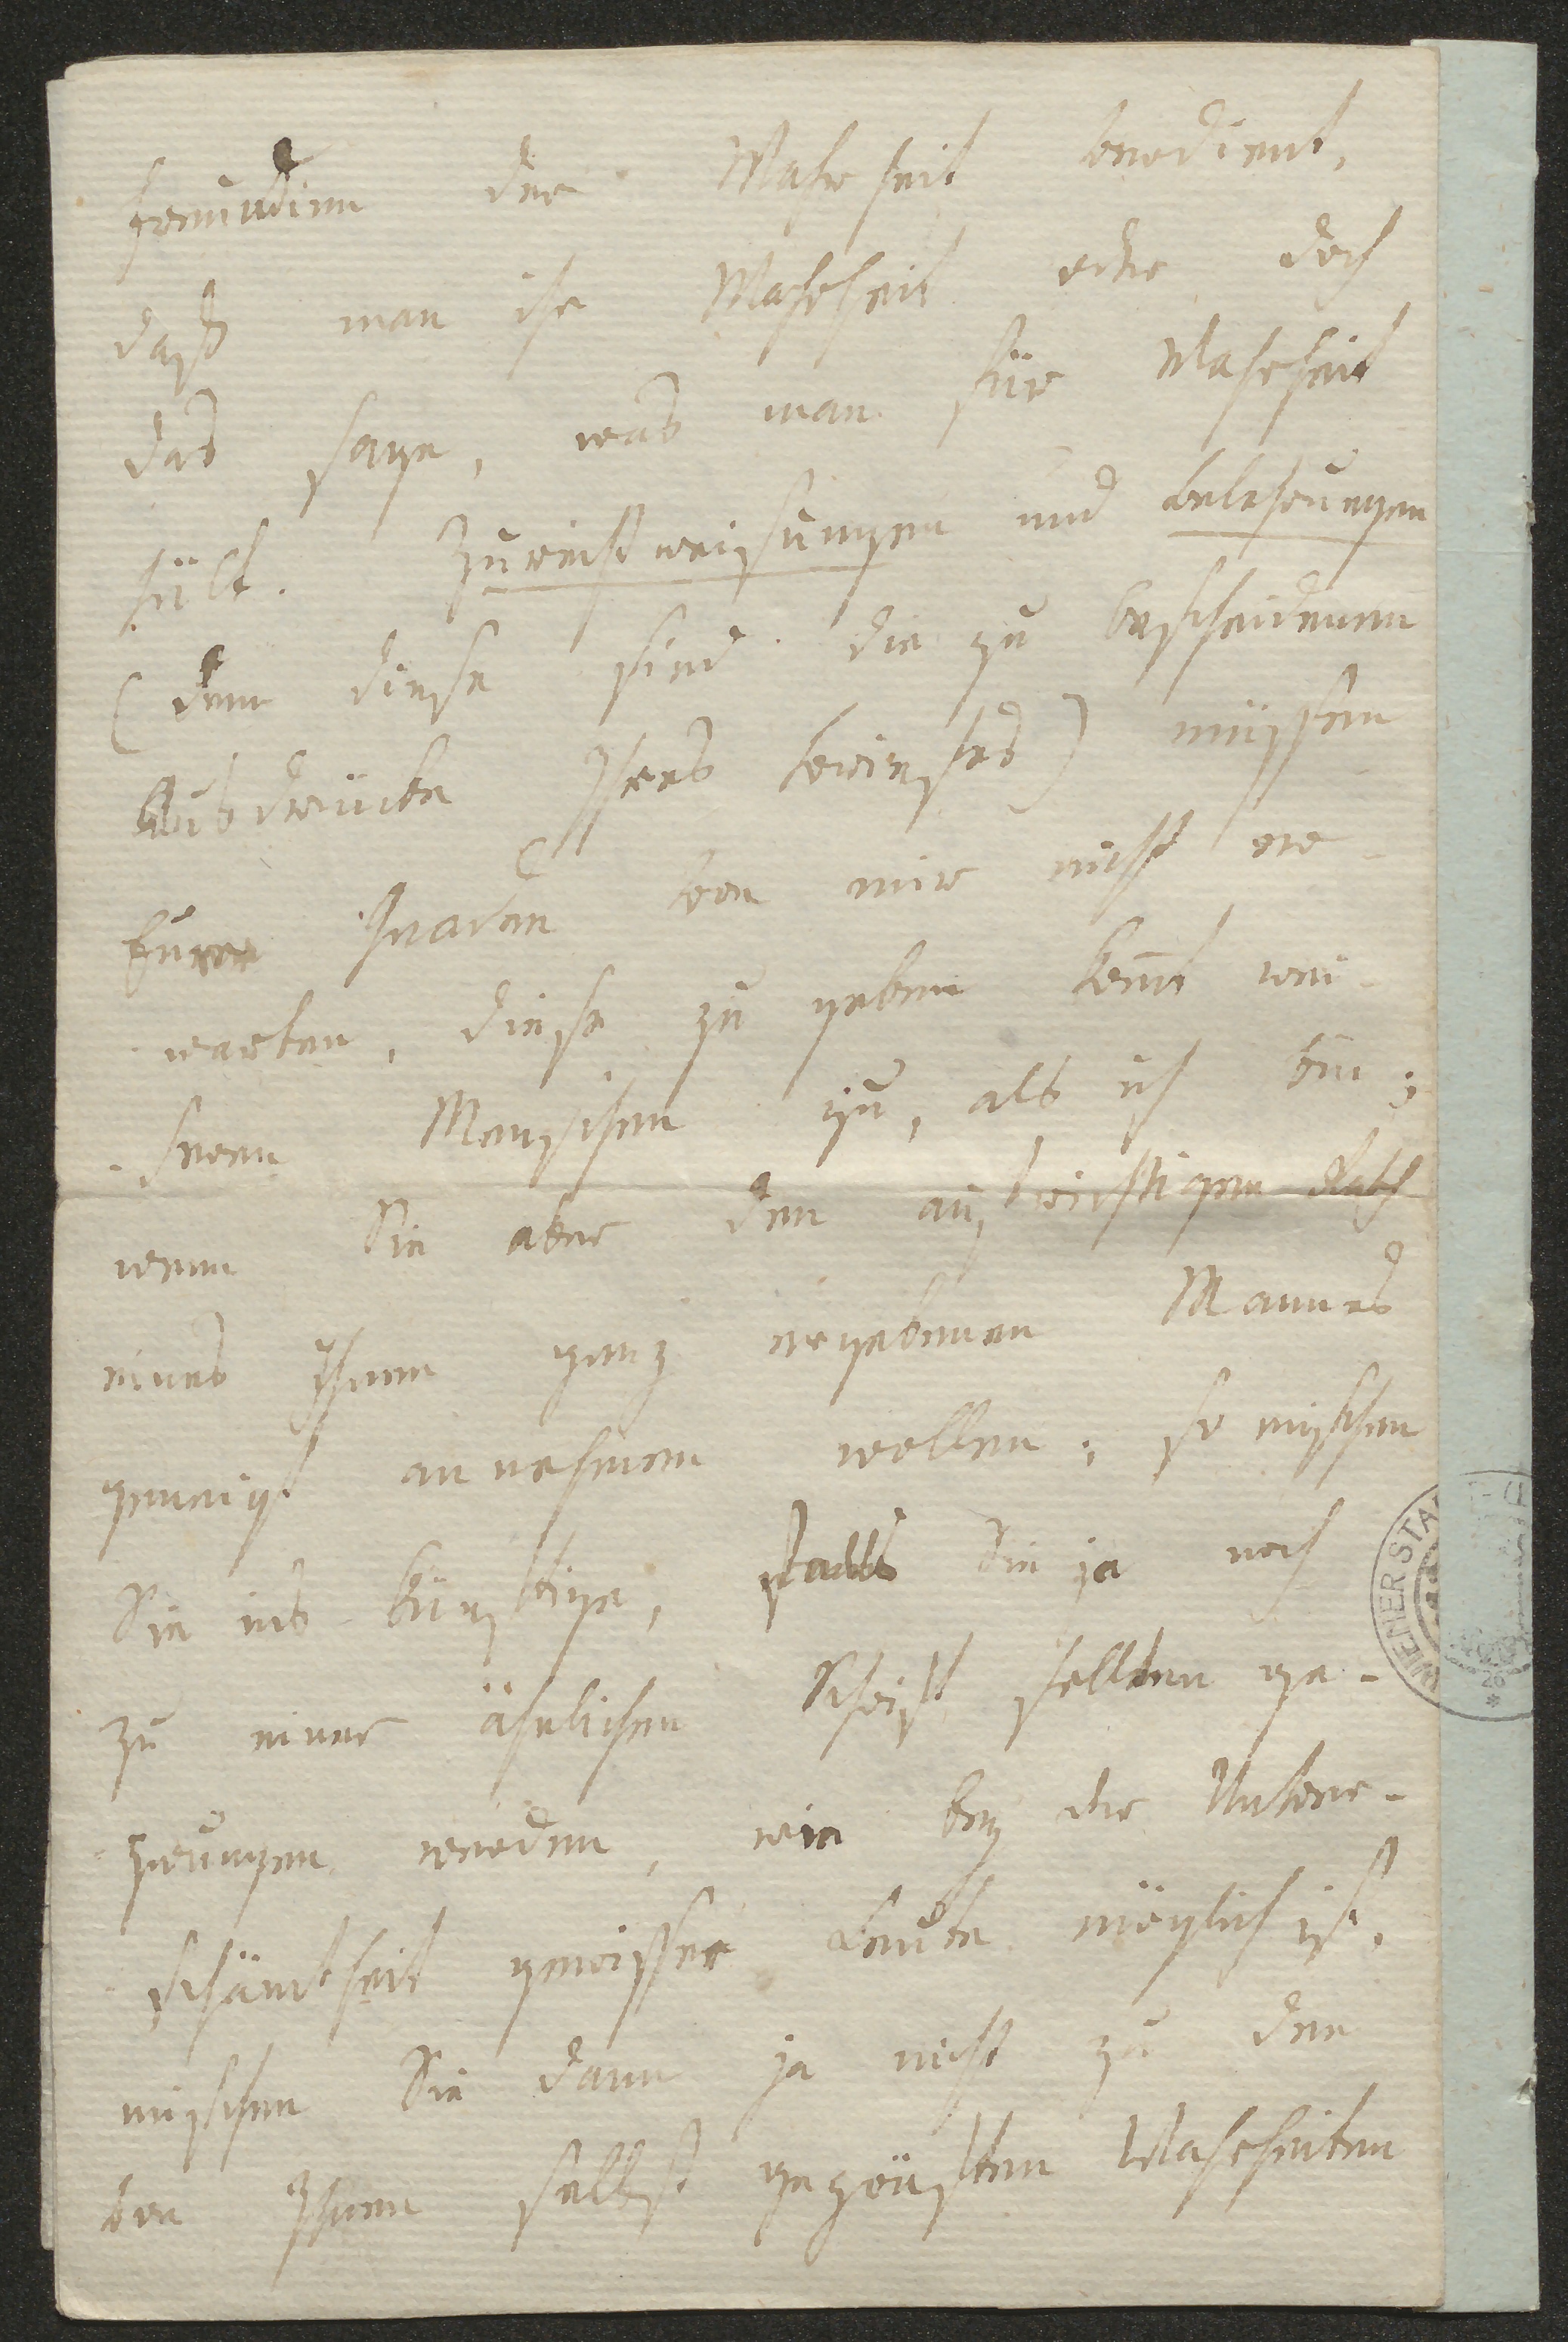 freundinn der Wahrheit verdient,
daß man ihr Wahrheit oder doch
das sage, was man für Wahrheit
hält. Zurechtweisungen und Belehrungen
(denn diese sind die zu bescheidenen
Ausdrücke Ihres Briefes) müssen
Euer Gnaden von mir nicht er-
warten, diese zu geben kömt wei-
seren Menschen zu, als ich bin;
wenn Sie aber den aufrichtigen Rath
eines Ihnen ganz ergebenen Mannes
geneigt annehmen wollen; so mischen
Sie ins künftige, falls Sie ja noch
zu einer ähnlichen Schrift sollten ge-
zwungen werden, wie bey der Unver-
schämtheit gewisser Leute möglich ist,
mischen Sie dann ja nicht zu den
von Ihnen selbst geprüften Wahrheiten
WIENER STA